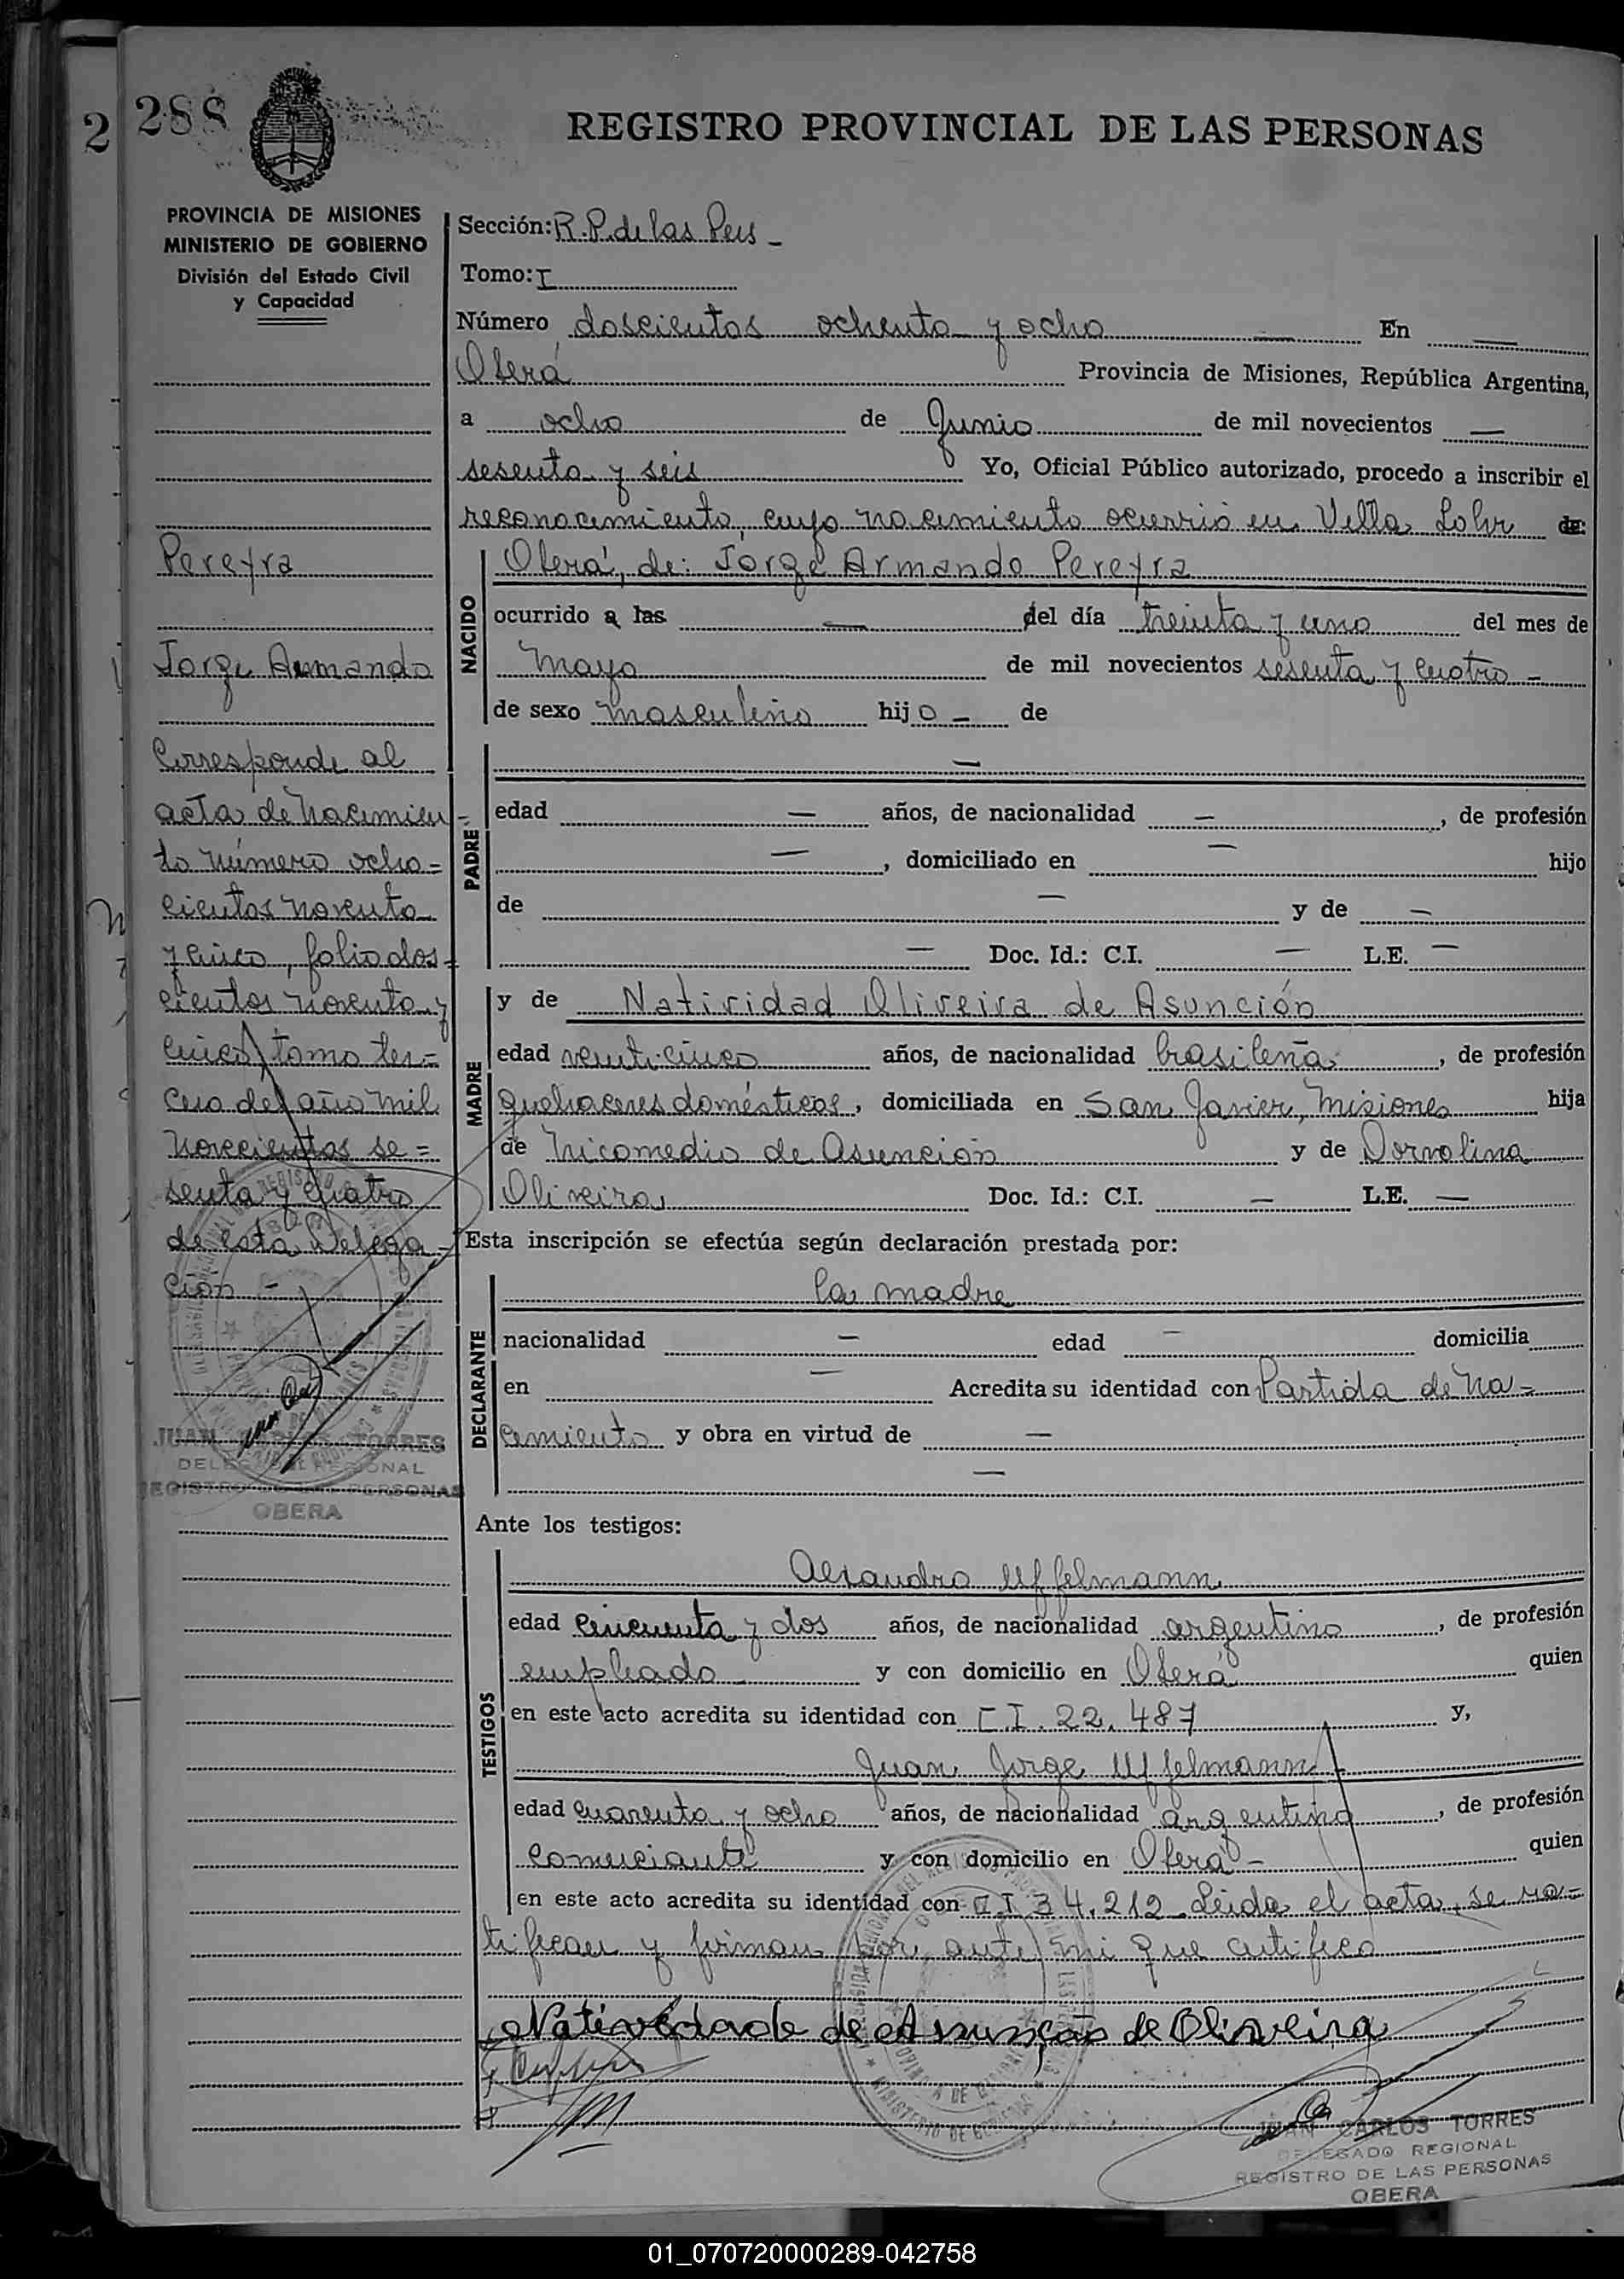 2 288
REGISTRO PROVINCIAL DE LAS PERSONAS
PROVINCIA DE MISIONES
MINISTERIO DE GOBIERNO
División del Estado Civil
y Capacidad
Pereyra
Jorge Armando
Corresponde al
acta de nacimien-
to número ocho=
cientos noventa
y cinco, folio dos=
cientos noventa y
cinco, tomo ter=
cero del año mil
novecientos se=
senta y cuatro
de esta Delega-
ción -
JUAN CARLOS TORRES
DELEGADO REGIONAL
REGISTRO DE LAS PERSONAS
OBERA
Sección: R.P. de las Pers -
Tomo: I
Número doscientos ochenta y ocho — En —
Oberá Provincia de Misiones, República Argentina,
a ocho de Junio de mil novecientos —
sesenta y seis Yo, Oficial Público autorizado, procedo a inscribir el
reconocimiento, cuyo nacimiento ocurrió en Villa Lohr de:
NACIDO
Oberá, de: Jorge Armando Pereyra
ocurrido a las — del día treinta y uno del mes de
mayo de mil novecientos sesenta y cuatro -
de sexo masculino hijo - de
PADRE
—
edad — años, de nacionalidad —, de profesión
—, domiciliado en — hijo
de — y de —
— Doc. Id.: C.I. — L.E. —
MADRE
y de Natividad Oliveira de Asunción
edad veinticinco años, de nacionalidad brasileña, de profesión
quehaceres domésticos, domiciliada en San Javier, Misiones hija
de Nicomedio de Asunción y de Dorvolina
Oliveira Doc. Id.: C.I. — L.E. —
Esta inscripción se efectúa según declaración prestada por:
DECLARANTE
la madre
nacionalidad — edad — domicilia
en — Acredita su identidad con Partida de Na=
cimiento y obra en virtud de —
—
Ante los testigos:
TESTIGOS
Alejandro Uffelmann
edad cincuenta y dos años, de nacionalidad argentino, de profesión
empleado y con domicilio en Oberá quien
en este acto acredita su identidad con C.I. 22.487 y,
Juan Jorge Uffelmann
edad cuarenta y ocho años, de nacionalidad argentino, de profesión
comerciante y con domicilio en Oberá - quien
en este acto acredita su identidad con C.I 34.212. Leida el acta, se ra=
tifican y firman por ante mi que certifico
Natividade de Assunção de Oliveira
JUAN CARLOS TORRES
DELEGADO REGIONAL
REGISTRO DE LAS PERSONAS
OBERA
01_070720000289-042758